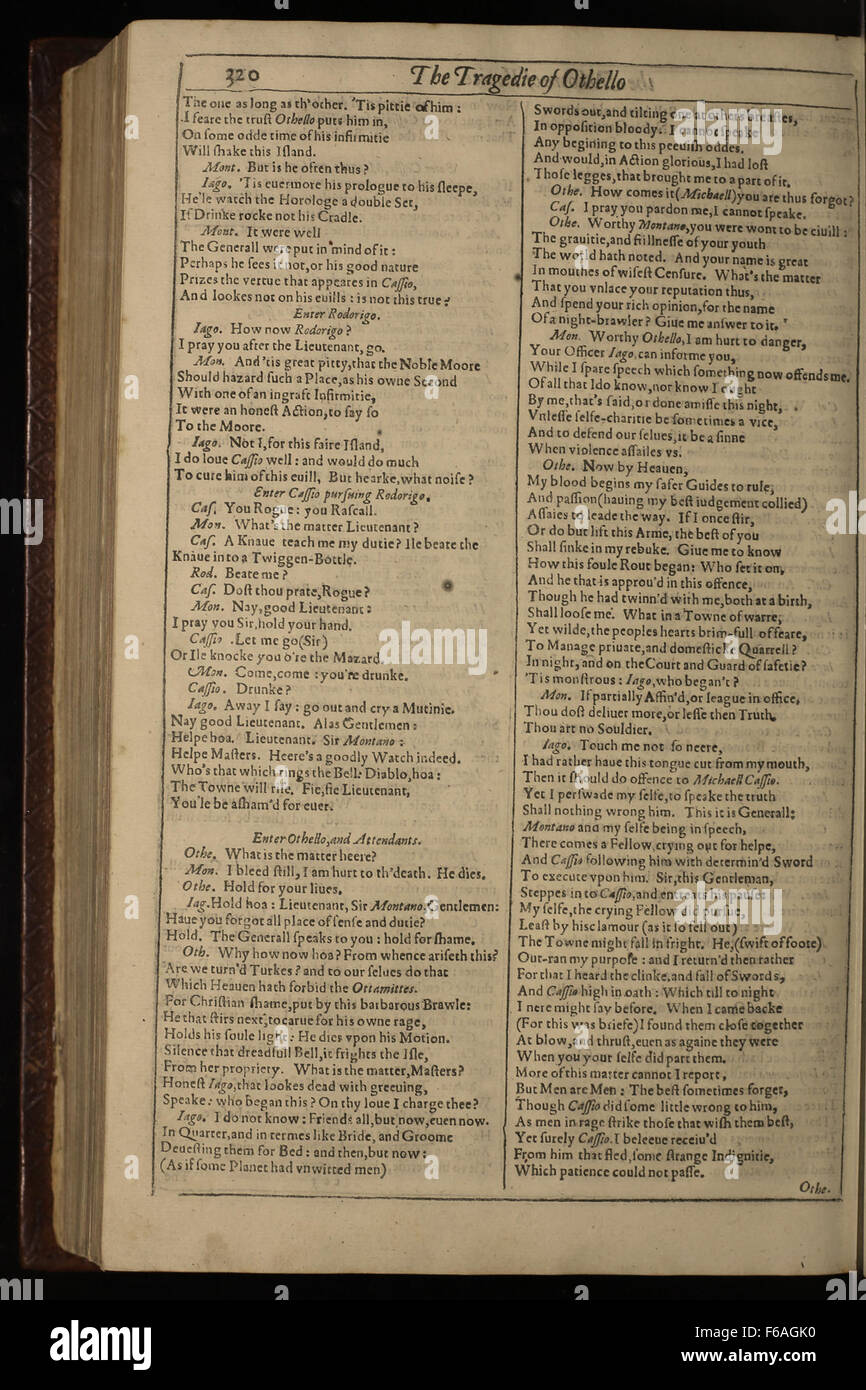 320
The Tragedie of Othello
The one as long as th'other. 'Tis pittie of him:
I feare the trust Othello puts him in,
On ſome odde time of his infirmitie
Will ſhake this Iſland.
Mont. But is he often thus?
Iago. 'Tis euermore his prologue to his ſleepe,
He'le watch the Horologe a double Set,
If Drinke rocke not his Cradle.
Mont. It were well
The Generall were put in mind of it:
Perhaps he ſees it not, or his good nature
Prizes the vertue that appeares in Caſſio,
And lookes not on his euills: is not this true?
Enter Rodorigo.
Iago. How now Rodorigo?
I pray you after the Lieutenant, go.
Mon. And 'tis great pitty, that the Noble Moore
Should hazard ſuch a Place, as his owne Second
With one of an ingraft Infirmitie,
It were an honeſt Action, to ſay ſo
To the Moore.
Iago. Not I, for this faire Iſland,
I do loue Caſſio well: and would do much
To cure him of this euill, But hearke, what noiſe?
Enter Caſſio purſuing Rodorigo.
Caſ. You Rogue: you Raſcall.
Mon. What's the matter Lieutenant?
Caſ. A Knaue teach me my dutie? Ile beate the
Knaue in to a Twiggen-Bottle.
Rod. Beate me?
Caſ. Doſt thou prate, Rogue?
Mon. Nay, good Lieutenant:
I pray you Sir, hold your hand.
Caſſio. Let me go (Sir)
Or Ile knocke you o're the Mazard.
Mon. Come, come: you're drunke.
Caſſio. Drunke?
Iago. Away I ſay: go out and cry a Mutinie.
Nay good Lieutenant. Alas Gentlemen:
Helpe hoa. Lieutenant. Sir Montano:
Helpe Maſters. Heere's a goodly Watch indeed.
Who's that which rings the Bell: Diablo, hoa:
The Towne will riſe. Fie, fie Lieutenant,
You'le be aſham'd for euer.
Enter Othello, and Attendants.
Othe. What is the matter heere?
Mon. I bleed ſtill, I am hurt to th'death. He dies.
Othe. Hold for your liues.
Iag. Hold hoa: Lieutenant, Sir Montano, Gentlemen:
Haue you forgot all place of ſenſe and dutie?
Hold. The Generall ſpeaks to you: hold for ſhame.
Oth. Why how now hoa? From whence ariſeth this?
Are we turn'd Turkes? and to our ſelues do that
Which Heauen hath forbid the Ottamittes.
For Chriſtian ſhame, put by this barbarous Brawle:
He that ſtirs next, to carue for his owne rage,
Holds his ſoule light: He dies vpon his Motion.
Silence that dreadfull Bell, it frights the Iſle,
From her propriety. What is the matter, Maſters?
Honeſt Iago, that lookes dead with greeuing,
Speake: who began this? On thy loue I charge thee?
Iago. I do not know: Friends all, but now, euen now.
In Quarter, and in termes like Bride, and Groome
Deueſting them for Bed: and then, but now:
(As if ſome Planet had vnwitted men)
Swords out, and tilting one at others breaſtes,
In oppoſition bloody. I cannot ſpeake
Any begining to this peeuiſh oddes.
And would, in Action glorious, I had loſt
Thoſe legges, that brought me to a part of it.
Othe. How comes it (Michaell) you are thus forgot?
Caſ. I pray you pardon me, I cannot ſpeake.
Othe. Worthy Montano, you were wont to be ciuill:
The grauitie, and ſtillneſſe of your youth
The world hath noted. And your name is great
In mouthes of wiſeſt Cenſure. What's the matter
That you vnlace your reputation thus,
And ſpend your rich opinion, for the name
Of a night-brawler? Giue me anſwer to it.
Mon. Worthy Othello, I am hurt to danger,
Your Officer Iago, can informe you,
While I ſpare ſpeech which ſomething now offends me.
Of all that I do know, nor know I ought
By me, that's ſaid, or done amiſſe this night,
Vnleſſe ſelfe-charitie be ſometimes a vice,
And to defend our ſelues, it be a ſinne
When violence aſſailes vs.
Othe. Now by Heauen,
My blood begins my ſafer Guides to rule,
And paſſion (hauing my beſt iudgement collied)
Aſſaies to leade the way. If I once ſtir,
Or do but lift this Arme, the beſt of you
Shall ſinke in my rebuke. Giue me to know
How this foule Rout began: Who ſet it on,
And he that is approu'd in this offence,
Though he had twinn'd with me, both at a birth,
Shall looſe me. What in a Towne of warre,
Yet wilde, the peoples hearts brim-full of feare,
To Manage priuate, and domeſticke Quarrell?
In night, and on the Court and Guard of ſafetie?
'Tis monſtrous: Iago, who began't?
Mon. If partially Affin'd, or league in office,
Thou doſt deliuer more, or leſſe then Truth,
Thou art no Souldier.
Iago. Touch me not ſo neere,
I had rather haue this tongue cut from my mouth,
Then it ſhould do offence to Michaell Caſſio.
Yet I perſwade my ſelfe, to ſpeake the truth
Shall nothing wrong him. This it is Generall:
Montano and my ſelfe being in ſpeech,
There comes a Fellow, crying out for helpe,
And Caſſio following him with determin'd Sword
To execute vpon him. Sir, this Gentleman,
Steppes in to Caſſio, and entreats his pauſe:
My ſelfe, the crying Fellow did purſue,
Leaſt by his clamour (as it ſo fell out)
The Towne might fall in fright. He, (ſwift of foote)
Out-ran my purpoſe: and I return'd then rather
For that I heard the clinke, and fall of Swords,
And Caſſio high in oath: Which till to night
I nere might ſay before. When I came backe
(For this was briefe) I found them cloſe together
At blow, and thruſt, euen as againe they were
When you your ſelfe did part them.
More of this matter cannot I report,
But Men are Men: The beſt ſometimes forget,
Though Caſſio did ſome little wrong to him,
As men in rage ſtrike thoſe that wiſh them beſt,
Yet ſurely Caſſio, I beleeue receiu'd
From him that fled, ſome ſtrange Indignitie,
Which patience could not paſſe.
Othe.
alamy
Image ID: F6AGK0
www.alamy.com